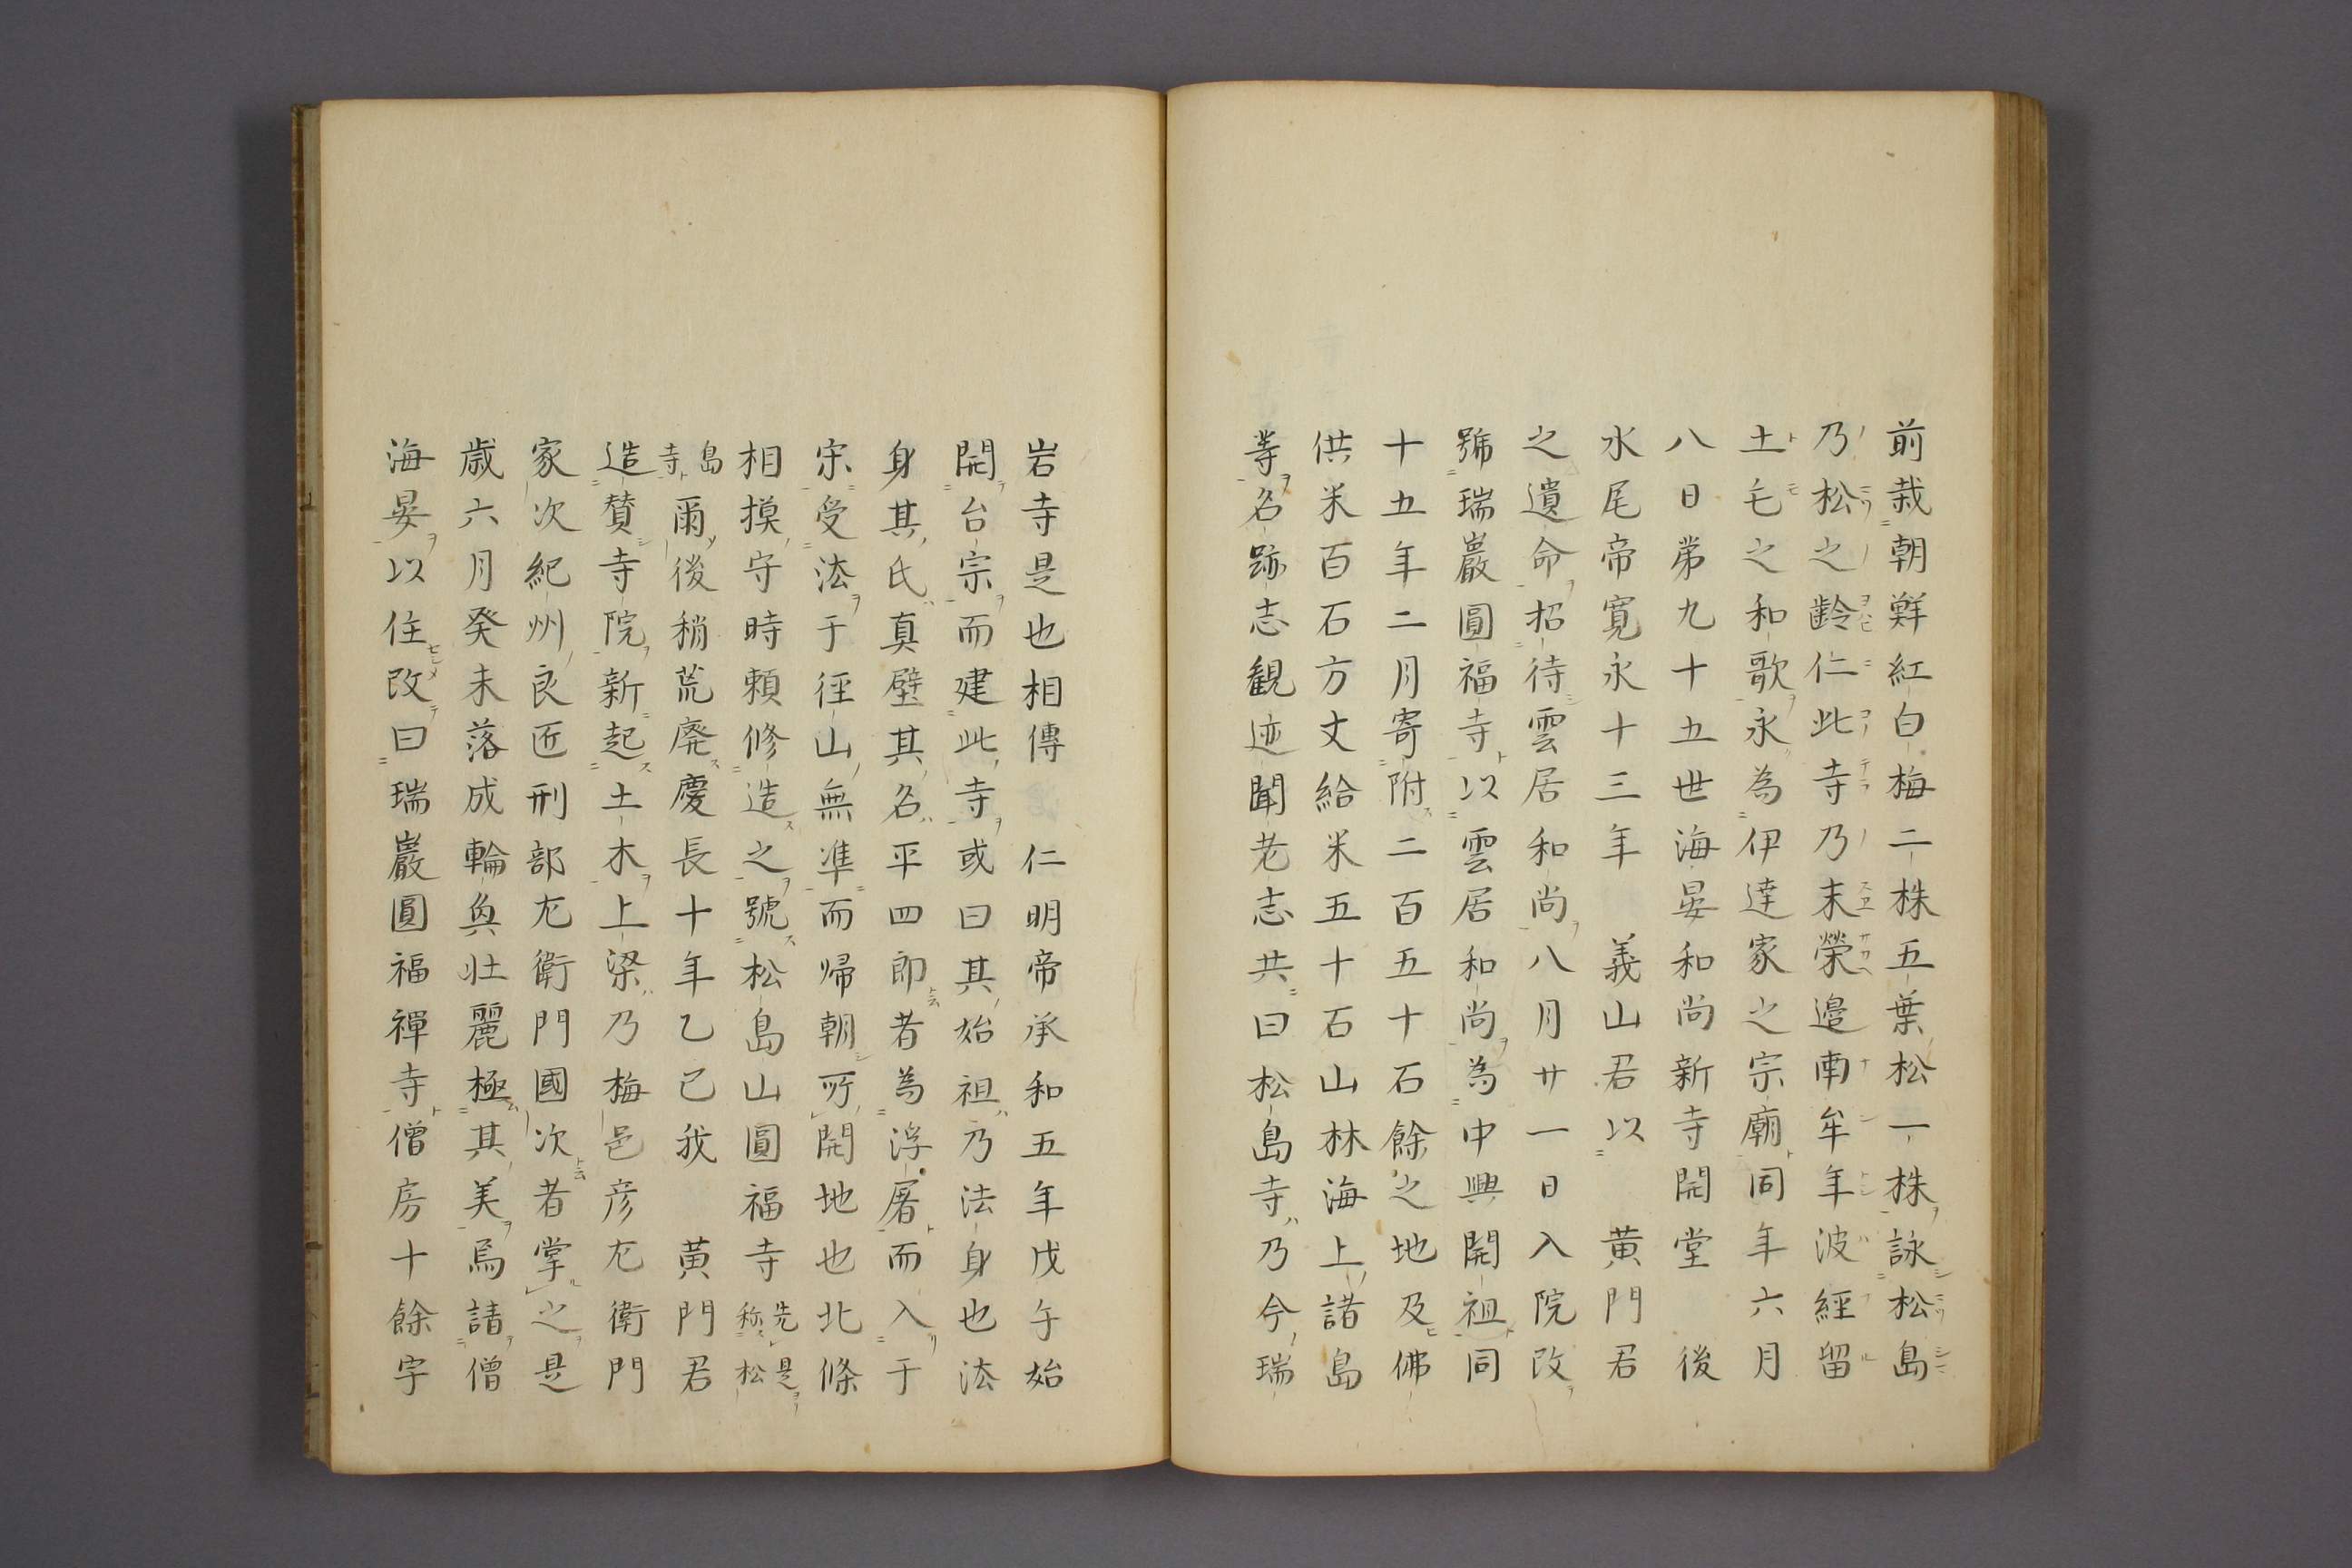 前栽朝鮮紅白梅二株五葉松一株詠松島
乃松之齡仁此寺乃末榮邉南牟年波經留
土毛之和歌永為伊達家之宗廟同年六月
八日第九十五世海晏和尚新寺開堂　後
水尾帝寛永十三年　義山君以　黄門君
之遺命招待雲居和尚八月廿一日入院改
號瑞巖圓福寺以雲居和尚為中興開祖同
十五年二月寄附二百五十石餘之地及佛
供米百石方丈給米五十石山林海上諸島
等名跡志観迹聞老志共曰松島寺乃今瑞
岩寺是也相傳　仁明帝承和五年戊午始
開台宗而建此寺或曰其始祖乃法身也法
身其氏真壁其名平四郎者為浮屠而入于
宋受法于徑山無準而帰朝所開地也北條
相摸守時頼修造之號松島山圓福寺先是称松
島寺爾後稍荒廃慶長十年乙巳我　黄門君
造賛寺院新起土木上梁乃梅邑彦左衛門
家次紀州良匠刑部左衛門國次者掌之是
歳六月癸未落成輪奐壮麗極其美焉請僧
海晏以住改曰瑞巖圓福禪寺僧房十餘宇